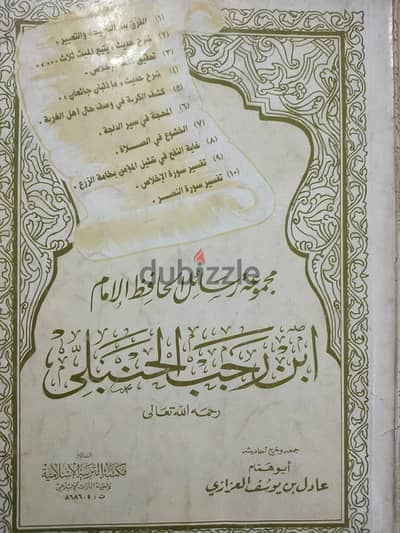 (١) الفرق بين النصيحة والتعيير .
(٢) شرح حديث ، يتبع الميت ثلاث ....
(٣) الإخلاص .
(٤) شرح حديث ، ما ذئبان جائعان ،
(٥) كشف الكربة في وصف حال اهل الغربة .
(٦) المحجة في سير الدلجة .
(٧) الخشوع في الصلاة .
(٨) غاية النفع في تمثيل المؤمن بخامة الزرع .
(٩) تفسير سورة الإخلاص .
(١٠) تفسير سورة النصر .
dubizzle
مجموعة رسائل الحافظ الإمام
ابن رجب الحنبلي
رحمه الله تعالى
جمعه وخرج أحاديثه
أبو همام
عادل بن يوسف العزازي
الناشر
مكتبة التربية الإسلامية
لإحياء التراث الإسلامي
ت : ٨٦٨٦٠٥